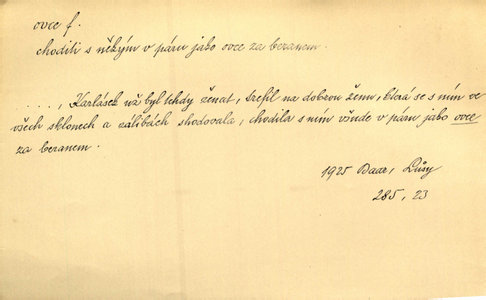 ovce f.
choditi s někým v páru jako ovce za beranem.
...., Karlásek už byl tehdy ženat, trefil na dobrou ženu, která se s ním ve
všech sklonech a zálibách shodovala, chodila s ním všude v páru jako ovce
za beranem.
1925 Baar, Lůsy
285, 23